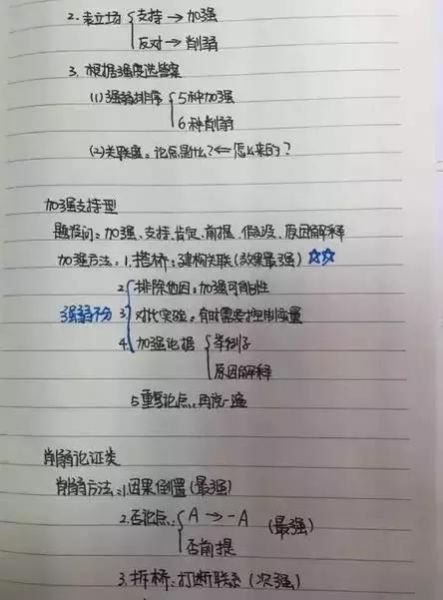 2. 表立场 支持 → 加强
反对 → 削弱
3. 根据强度选答案
(1)强弱排序 5种加强
6种削弱
(2)关联度。论点是什么?⇐怎么来的?
加强支持型
题发问:加强、支持、肯定、前提、假设、原因解释
加强方法:1.搭桥:建构关联(效果最强)☆☆
2.排除他因:加强可能性
强弱不分 3.对比实验,有时需要控制变量
4.加强论据 举例子
原因解释
5.重复论点,再说一遍
削弱论证类
削弱方法:1.因果倒置(最强)
2.否论点:A → -A (最强)
否前提
3.拆桥:打断联系(次强)